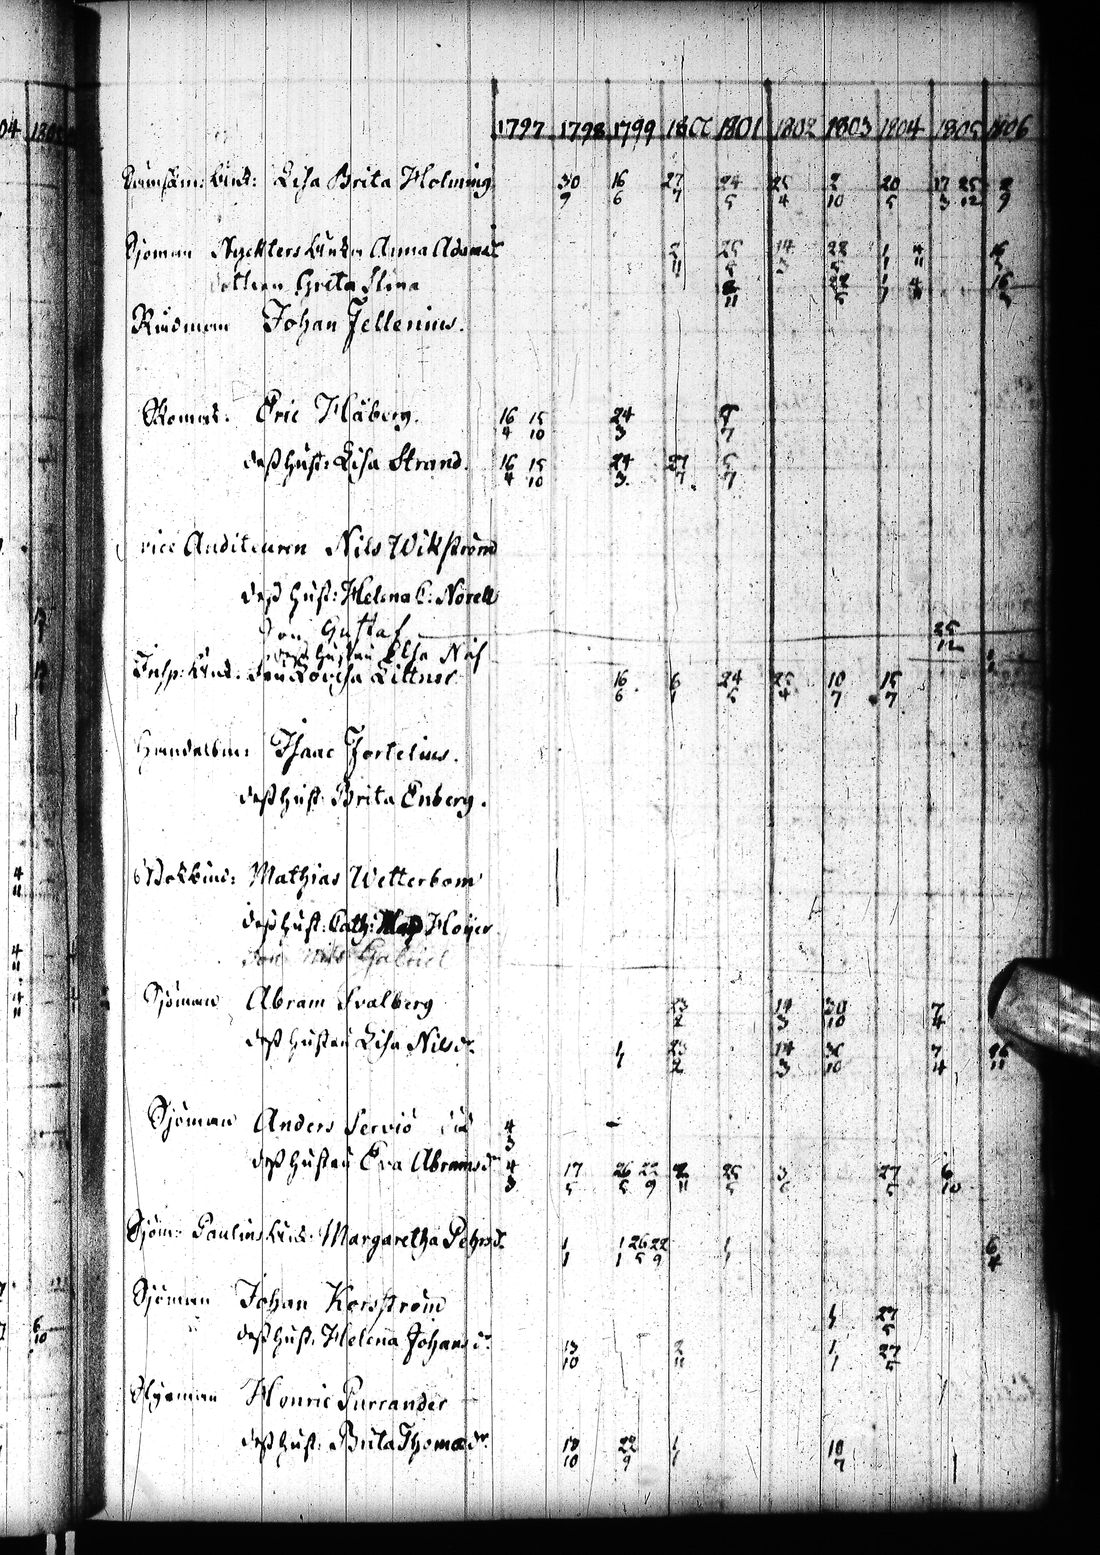 04 1805 1797 1798 1799 1800 1801 1802 1803 1804 1805 1806
Lisa Brita Holming 30/9 16/6 27/7 24/5 25/4 2/10 20/5 17/3 25/12 2/9
Sjöman Nyckters Anna Adamsdr 2/11 25/5 14/3 22/5 1/1 4/11 16/5
dottren Greta Stina 2/11 22/5 1/1 4/11 16/5
Rådman Johan Jellenius.
Skomak: Eric Flåberg. 16/4 15/10 24/3 5/7
deß hust: Lisa Strand. 16/4 15/10 24/3 27/7 5/7
vice Auditeuren Nils Wikström
deß hust: Helena C: Norell
Son Gustaf 25/12
deß hustru Elsa Näs
Lovisa Littner 16/6 6/1 24/5 25/4 10/7 15/7
Handelsm: Isaac Fortelius.
deß hust: Brita Enberg.
Mathias Wetterbom
deß hust: Cath: Höijer
Son Nils Gabriel
Sjöman Abram Svalberg 23/2 14/3 30/10 7/4
deß hustru Lisa Nilsdr. 1/1 23/2 14/3 30/10 7/4 26/11
Sjöman Anders Serviö 4/3
deß hustru Eva Abramsdr 4/3 17/5 26/5 22/9 2/11 25/5 27/5 6/10
Sjöm: Paulins Margaretha Pehrsdr. 1/1 1/1 26/5 22/9 1/1 6/4
Sjöman Johan Korsström 1/1 27/5
deß hust. Helena Johansdr 13/10 2/11 1/1 27/5
Henric Purrander
deß hust: Brita Thomædr. 10/10 22/9 1/1 10/7